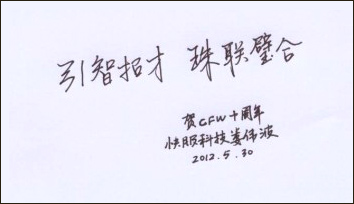 引智招才 珠联璧合
贺CFW十周年
快服科技娄伟波
2012.5.30